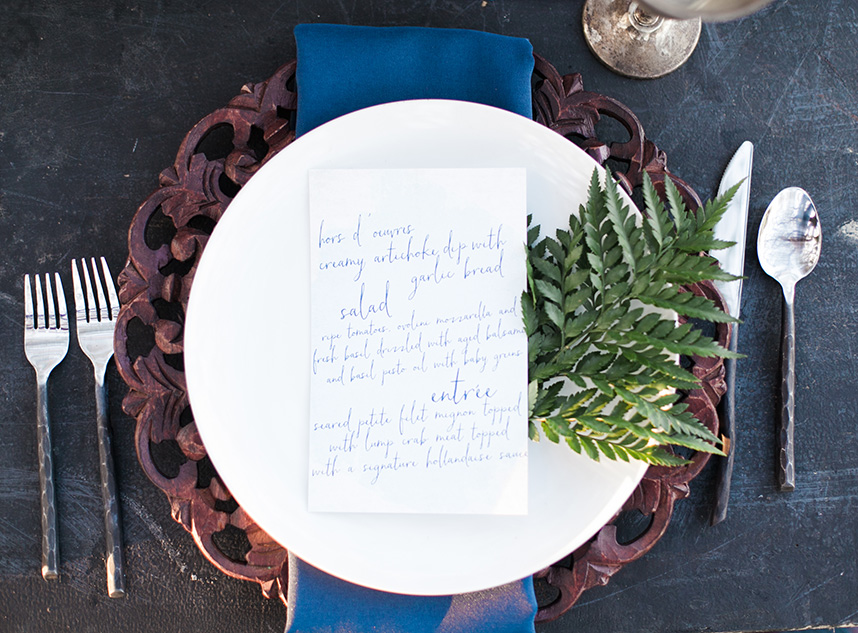 hors d'oeuvres
creamy artichoke dip with
garlic bread
salad
ripe tomatoes, ovoline mozzarella and
fresh basil drizzled with aged balsamic
and basil pesto oil with baby greens
entrée
seared petite filet mignon topped
with lump crab meat topped
with a signature hollandaise sauce